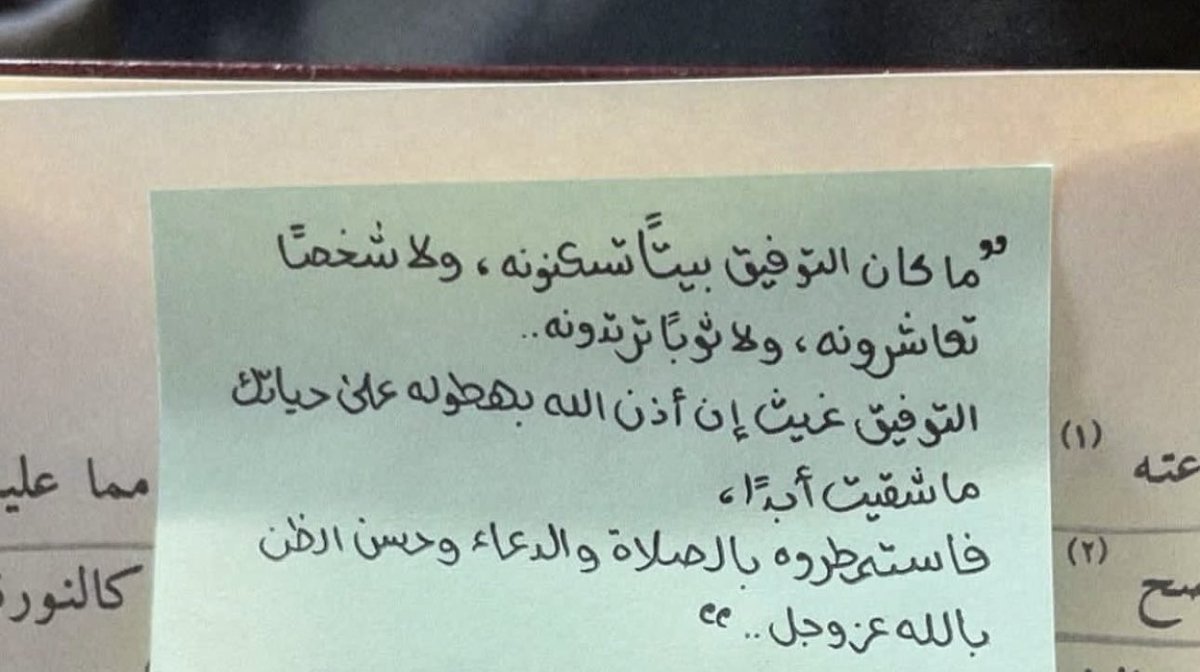 ”ما كان التوفيق بيتًا تسكنونه، ولا شخصًا
تعاشرونه، ولا ثوبًا ترتدونه..
التوفيق غيث إن أذن الله بهطوله على حياتك
ما شقيت أبدًا،
فاستمطروه بالصلاة والدعاء وحسن الظن
بالله عز وجل.. “
(١)
عته
مما عليـ
(٢)
صح
كالنورة